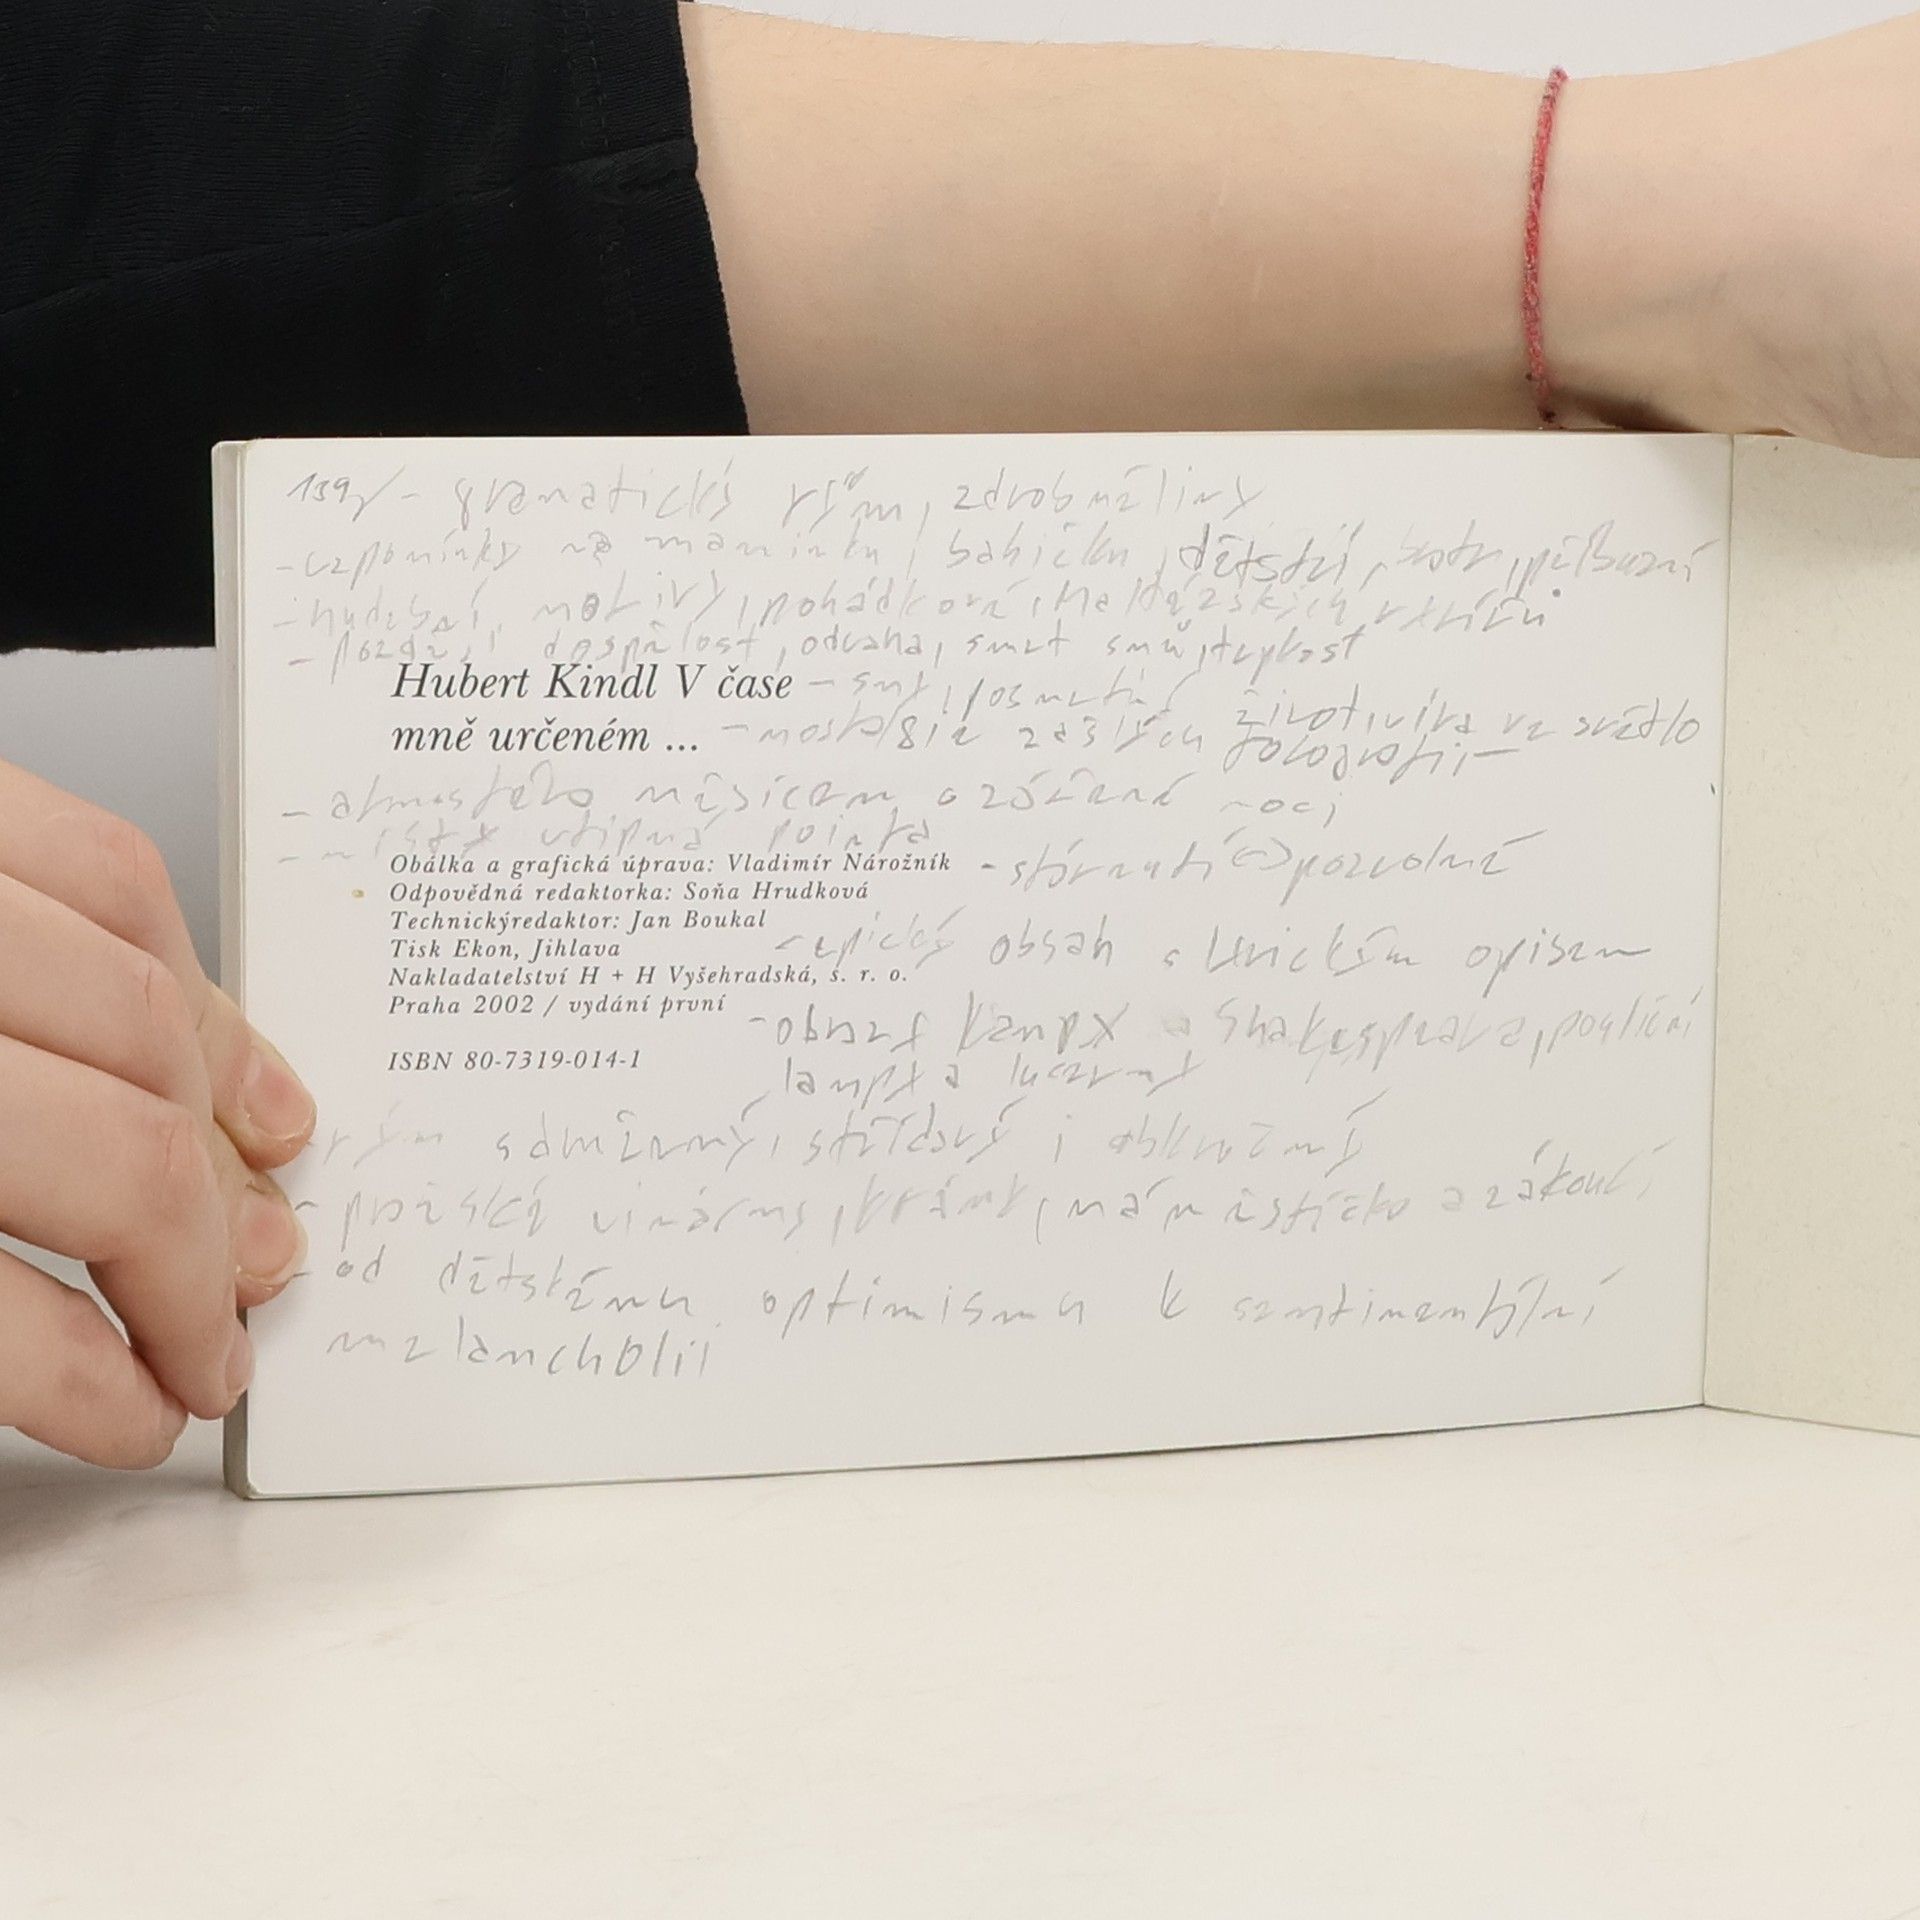 139/ - gramatický rým, zdrobněliny
- vzpomínky na maminku, babičku, dětství, příbuzní
- hudební motivy, pohádková, Maltézských rytířů
- dospělost, odvaha, smrt snů, trpkost
Hubert Kindl V čase - sny, posmrtný život, víra ve světlo
mně určeném ... - nostalgie zašlých fotografií,-
- atmosféra měsícem ozářené noci
- vtipná pointa
Obálka a grafická úprava: Vladimír Nárožník - stárnutí <-> pozvolné
Odpovědná redaktorka: Soňa Hrudková
Technickýredaktor: Jan Boukal
Tisk Ekon, Jihlava - epický obsah s lyrickým opisem
Nakladatelství H + H Vyšehradská, s. r. o.
Praha 2002 / vydání první
- obrazy Kampy a Shakespeara, pouliční
ISBN 80-7319-014-1
lampy a lucerny
rým sdružený, střídavý i obkročný
- pražské vinárny, krámy, náměstíčko a zákoutí
- od dětského optimismu k sentimentální
melancholii